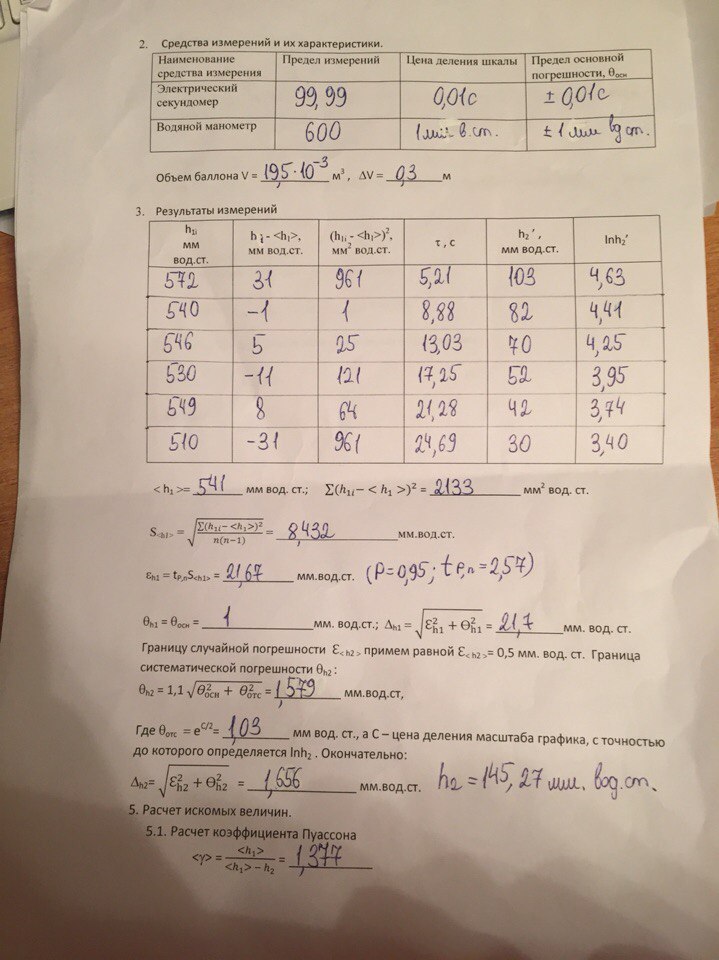 2. Средства измерений и их характеристики.
Наименование средства измерения Предел измерений Цена деления шкалы Предел основной погрешности, θосн
Электрический секундомер 99,99 0,01с ± 0,01с
Водяной манометр 600 1 мм в.ст. ± 1 мм вд ст.
Объем баллона V = 19,5·10⁻³ м³ , ΔV = 0,3 м
3. Результаты измерений
h₁ᵢ мм вод.ст. h ᵢ - <h₁>, мм вод.ст. (h₁ᵢ - <h₁>)², мм² вод.ст. τ , с h₂′ , мм вод.ст. lnh₂′
572 31 961 5,21 103 4,63
540 -1 1 8,88 82 4,41
546 5 25 13,03 70 4,25
530 -11 121 17,25 52 3,95
549 8 64 21,28 42 3,74
510 -31 961 24,69 30 3,40
< h₁ >= 541 мм вод. ст.; Σ(h₁ᵢ − < h₁ >)² = 2133 мм² вод. ст.
S<h1> = √(Σ(h₁ᵢ−<h₁>)²/n(n−1)) = 8,432 мм.вод.ст.
εh1 = tP,nS<h1> = 21,67 мм.вод.ст. (P=0,95; tP,n = 2,57)
θh1 = θосн = 1 мм. вод. ст.; Δh1 = √(Ɛ²h1 + Θ²h1) = 21,7 мм. вод. ст.
Границу случайной погрешности Ɛ< h2 > примем равной Ɛ< h2 >= 0,5 мм. вод. ст. Граница
систематической погрешности θh2 :
θh2 = 1,1 √(Θ²осн + Θ²отс) = 1,579 мм.вод.ст,
Где θотс = eᶜ/²= 1,03 мм вод. ст., а C – цена деления масштаба графика, с точностью
до которого определяется lnh₂ . Окончательно:
Δh2= √(Ɛ²h2 + Θ²h2) = 1,656 мм.вод.ст. h₂ = 145,27 мм. вод.ст.
5. Расчет искомых величин.
5.1. Расчет коэффициента Пуассона
<γ> = <h₁>/(<h₁> − h₂) = 1,377